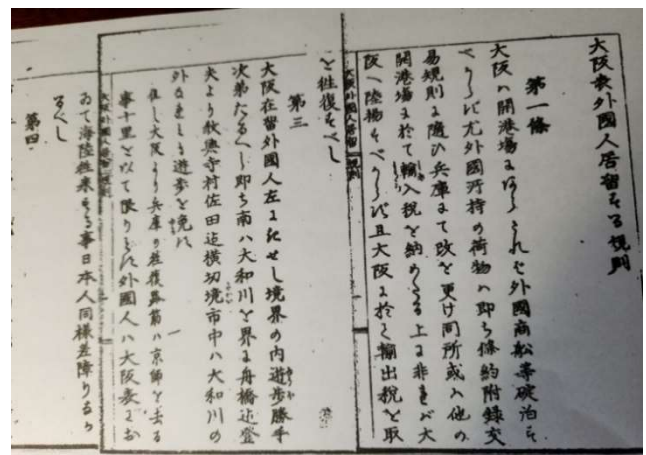 大阪表外國人居留する規則
第一條
大阪ハ開港場にあらされは外國商船等碇泊す
へからす尤外國所持の荷物ハ即ち條約附録交
易規則に隨ひ兵庫にて改を更け同所或ハ他の
開港場に於て輸入税を納めたる上に非れバ大
阪へ陸揚すへからす且大阪に於て輸出税を取
を往復すへし
第三
大阪在留外國人左に記せし境界の内遊歩勝手
次第たるへし即ち南ハ大和川を界に舟橋迄登
夫より教興寺村佐田迄横切境市中ハ大和川の
外なれとも遊歩を免す
但し大阪より兵庫の往復路筋ハ京師を去る
事十里を以て限りとす外國人ハ大阪表にお
ゐて海陸往来する事日本人同様差障りなか
るへし
第四